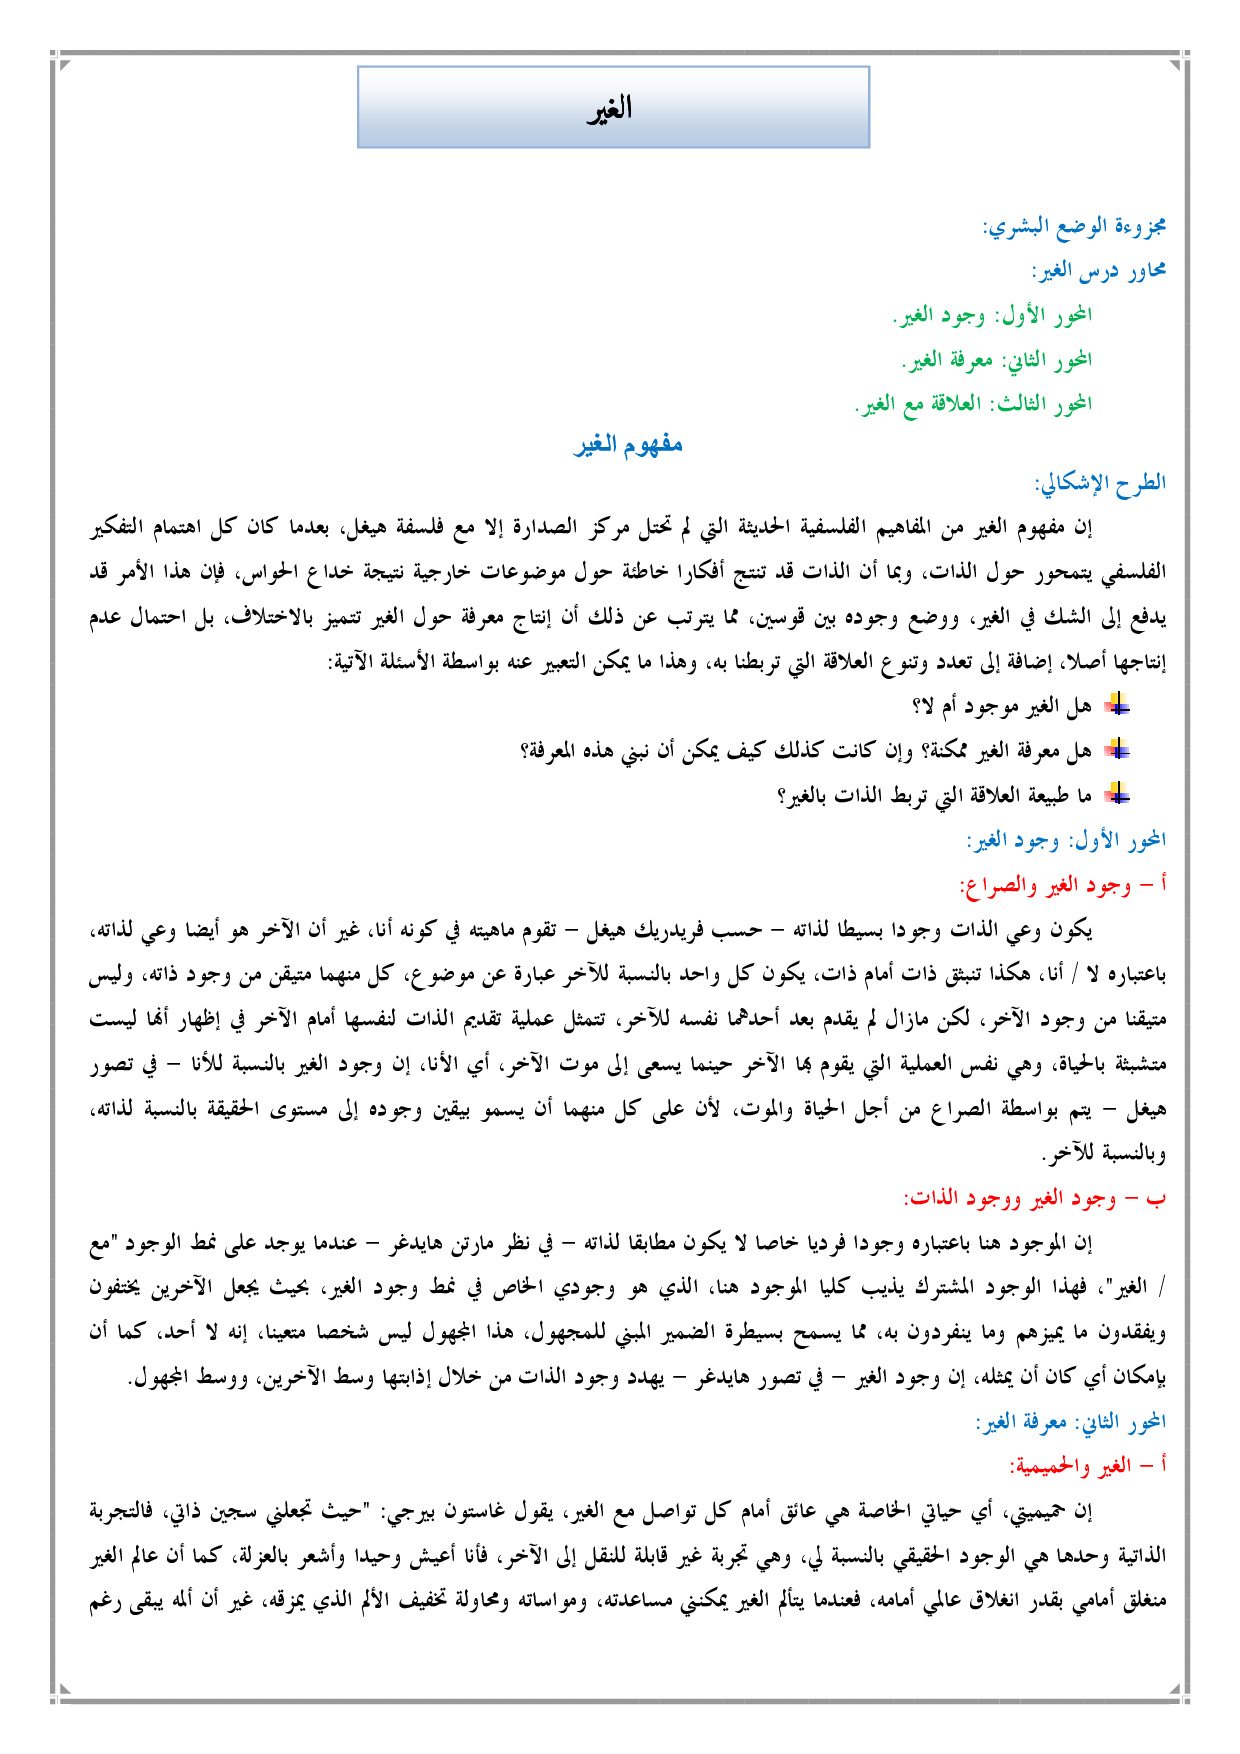 الغير
مجزوءة الوضع البشري:
محاور درس الغير:
المحور الأول: وجود الغير.
المحور الثاني: معرفة الغير.
المحور الثالث: العلاقة مع الغير.
مفهوم الغير
الطرح الإشكالي:
إن مفهوم الغير من المفاهيم الفلسفية الحديثة التي لم تحتل مركز الصدارة إلا مع فلسفة هيغل، بعدما كان كل اهتمام التفكير
الفلسفي يتمحور حول الذات، وبما أن الذات قد تنتج أفكارا خاطئة حول موضوعات خارجية نتيجة خداع الحواس، فإن هذا الأمر قد
يدفع إلى الشك في الغير، ووضع وجوده بين قوسين، مما يترتب عن ذلك أن إنتاج معرفة حول الغير تتميز بالاختلاف، بل احتمال عدم
إنتاجها أصلا، إضافة إلى تعدد وتنوع العلاقة التي تربطنا به، وهذا ما يمكن التعبير عنه بواسطة الأسئلة الآتية:
هل الغير موجود أم لا؟
هل معرفة الغير ممكنة؟ وإن كانت كذلك كيف يمكن أن نبني هذه المعرفة؟
ما طبيعة العلاقة التي تربط الذات بالغير؟
المحور الأول: وجود الغير:
أ – وجود الغير والصراع:
يكون وعي الذات وجودا بسيطا لذاته – حسب فريدريك هيغل – تقوم ماهيته في كونه أنا، غير أن الآخر هو أيضا وعي لذاته،
باعتباره لا / أنا، هكذا تنبثق ذات أمام ذات، يكون كل واحد بالنسبة للآخر عبارة عن موضوع، كل منهما متيقن من وجود ذاته، وليس
متيقنا من وجود الآخر، لكن مازال لم يقدم بعد أحدهما نفسه للآخر، تتمثل عملية تقديم الذات لنفسها أمام الآخر في إظهار أنها ليست
متشبثة بالحياة، وهي نفس العملية التي يقوم بها الآخر حينما يسعى إلى موت الآخر، أي الأنا، إن وجود الغير بالنسبة للأنا – في تصور
هيغل – يتم بواسطة الصراع من أجل الحياة والموت، لأن على كل منهما أن يسمو بيقين وجوده إلى مستوى الحقيقة بالنسبة لذاته،
وبالنسبة للآخر.
ب – وجود الغير ووجود الذات:
إن الموجود هنا باعتباره وجودا فرديا خاصا لا يكون مطابقا لذاته – في نظر مارتن هايدغر – عندما يوجد على نمط الوجود "مع
/ الغير"، فهذا الوجود المشترك يذيب كليا الموجود هنا، الذي هو وجودي الخاص في نمط وجود الغير، بحيث يجعل الآخرين يختفون
ويفقدون ما يميزهم وما ينفردون به، مما يسمح بسيطرة الضمير المبني للمجهول، هذا المجهول ليس شخصا متعينا، إنه لا أحد، كما أن
بإمكان أي كان أن يمثله، إن وجود الغير – في تصور هايدغر – يهدد وجود الذات من خلال إذابتها وسط الآخرين، ووسط المجهول.
المحور الثاني: معرفة الغير:
أ – الغير والحميمية:
إن حميميتي، أي حياتي الخاصة هي عائق أمام كل تواصل مع الغير، يقول غاستون بيرجي: "حيث تجعلني سجين ذاتي، فالتجربة
الذاتية وحدها هي الوجود الحقيقي بالنسبة لي، وهي تجربة غير قابلة للنقل إلى الآخر، فأنا أعيش وحيدا وأشعر بالعزلة، كما أن عالم الغير
منغلق أمامي بقدر انغلاق عالمي أمامه، فعندما يتألم الغير يمكنني مساعدته، ومواساته ومحاولة تخفيف الألم الذي يمزقه، غير أن ألمه يبقى رغم